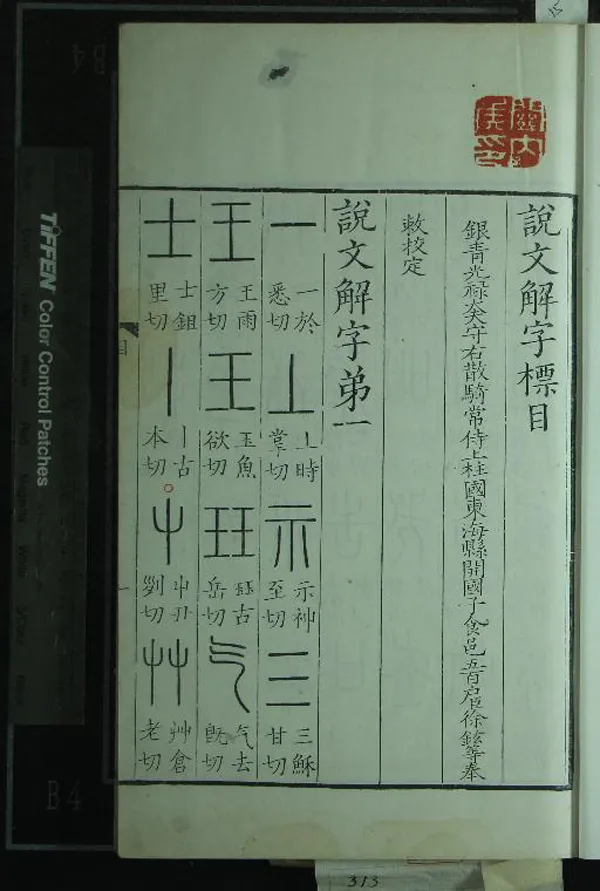 說文解字標目
銀青光祿大夫守右散騎常侍上柱國東海縣開國子食邑五百戶臣徐鉉等奉
敕校定
說文解字弟一
一 一於悉切 丄 丄時掌切 示 示神至切 三 三穌甘切
王 王雨方切 玉 玉魚欲切 玨 玨古岳切 气 气去旣切
士 士鉏里切 丨 丨古本切 屮 屮丑切 艸 艸倉老切
目
一
TIFFEN Color Control Patches
B4
313